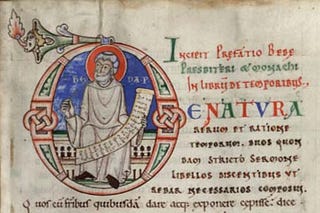 INCIPIT PREFATIO BEDE
PRESBITERI & MONACHI
IN LIBRŪ DE TEMPORIBUS.
BE DA P
DE NATURA
RERUM ET RATIONE
TEMPORUM. DUOS QUON
DAM STRICTO SERMONE
LIBELLOS DISCENTIBUS UT
REBAR NECESSARIOS COMPOSUI.
Quos cū fribus quibusdā dare atq; exponere cepisse. dice